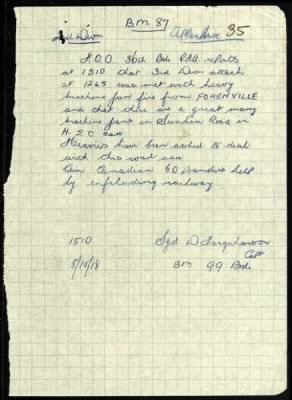 B.M. 87
Appendix 35
2nd Divn
F.O.O. 36th Bde RFA reports
at 1310 that 3rd Divn attack
at 1245 was met with heavy
machine gun fire from FORENVILLE
and that there are a great many
machine guns in Sunken Road in
H.2.C. aaa
Heavies have been asked to deal
with this road aaa
Can Canadian 60 pounders help
by enfilading railway.
1510
8/10/18
Sgd D Farquharson
Capt
BM 99 Bde